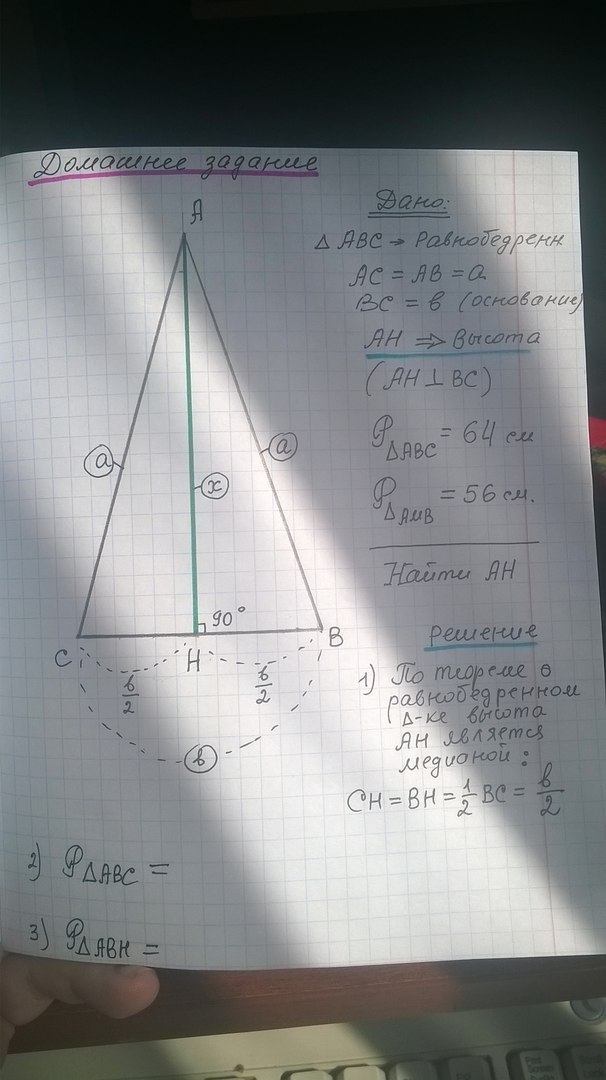 Домашнее задание
A
a
a
x
90°
C
H
B
в/2
в/2
в
Дано:
Δ ABC → Равнобедренн
AC = AB = a
BC = в (основание)
AH ⇒ Высота
(AH ⊥ BC)
P ΔABC = 64 см
P ΔAMB = 56 см.
Найти AH
Решение
1) По теореме о
равнобедренном
Δ-ке высота
AH является
медионой :
CH = BH = 1/2 BC = в/2
2) P ΔABC =
3) P ΔABH =